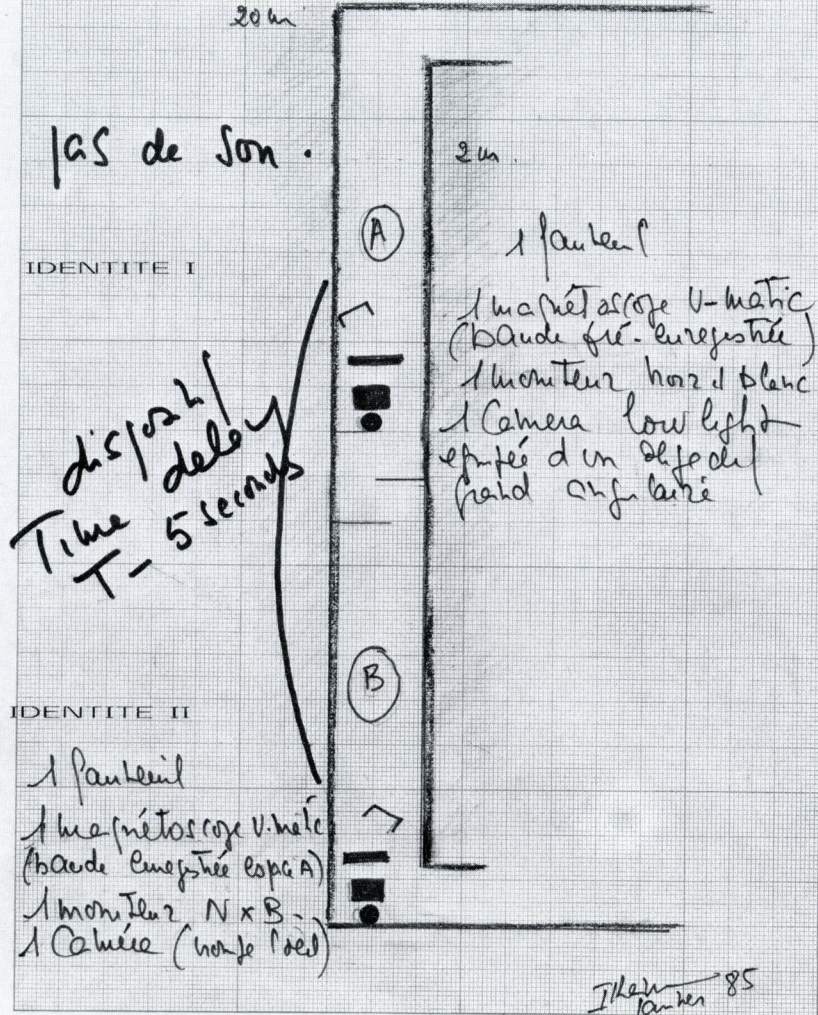 20 m
pas de son .
2 m.
A
1 fauteuil
IDENTITE I
1 magnétoscope U-matic
(bande pré-enregistrée)
1 moniteur noir & blanc
1 Camera low light
équipée d'un objectif
grand angulaire
dispositif
Time delay
T - 5 seconds
B
IDENTITE II
1 fauteuil
1 magnétoscope U-matic
(bande enregistrée espace A)
1 moniteur N x B -
1 Caméra
85